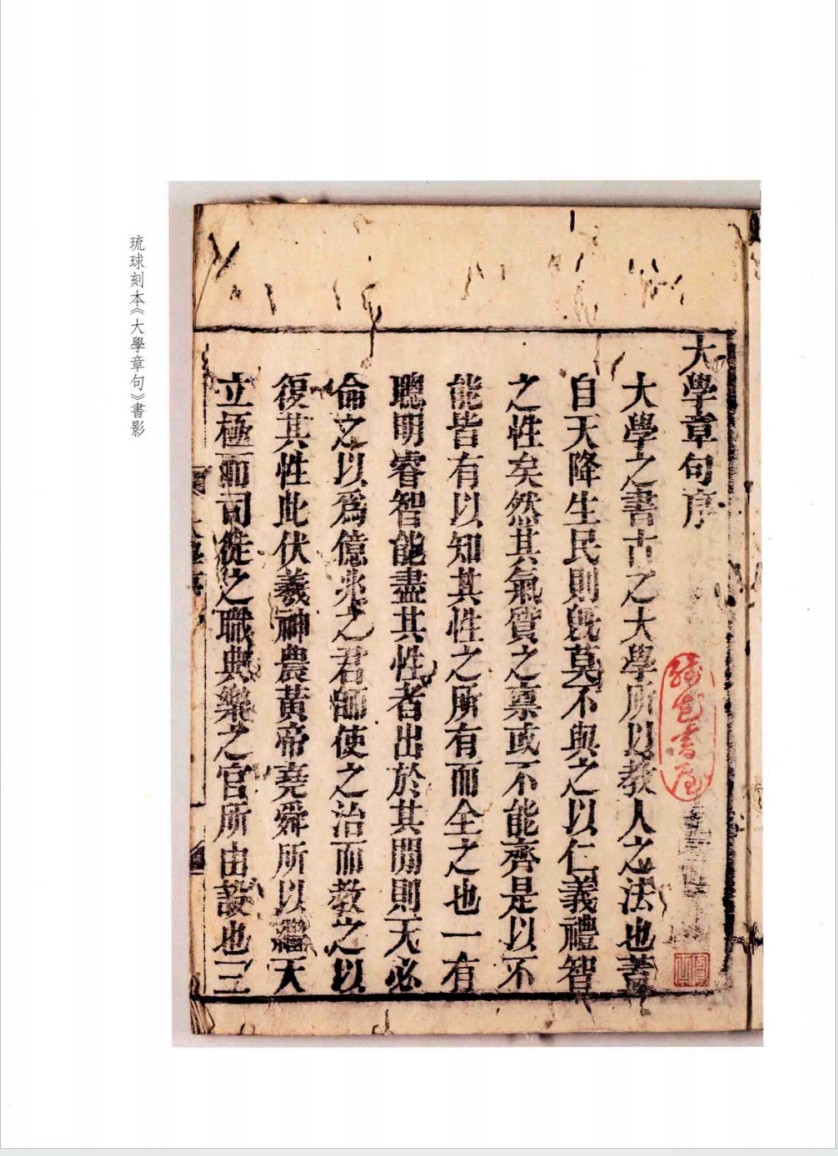 琉球刻本《大學章句》書影
大學章句序
大學之書古之大學所以教人之法也蓋
自天降生民則旣莫不與之以仁義禮智
之性矣然其氣質之稟或不能齊是以不
能皆有以知其性之所有而全之也一有
聰明睿智能盡其性者出於其閒則天必
命之以爲億兆之君師使之治而教之以
復其性此伏羲神農黃帝堯舜所以繼天
立極而司徒之職典樂之官所由設也三